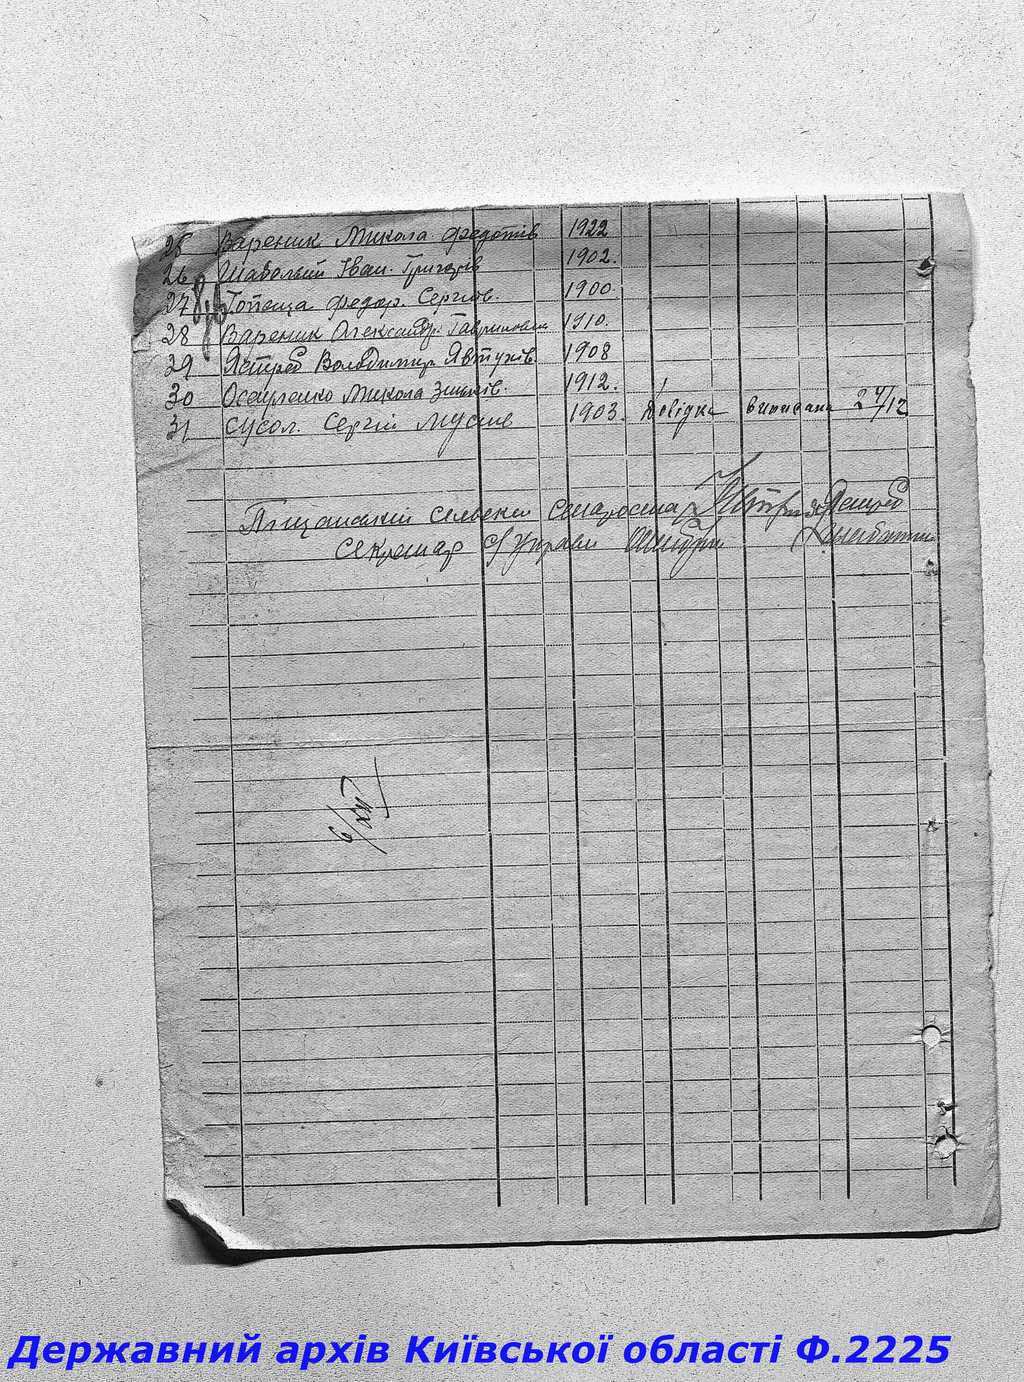 25 Вареник Микола Федотів 1922
26 Шабельний Іван Григорів 1902.
27 Топеща Федор. Сергіов. 1900.
28 Вареник Олександр. Гаврилович 1910.
29 Ястреб Володимир Явтухів. 1908
30 Микола 1912.
31 Сусол. Сергій Мусиїв 1903. Довідка виписана 24/12
Піщанський сільськи староста Ястреб
Секретар С/управи
Державний архів Київської області Ф.2225